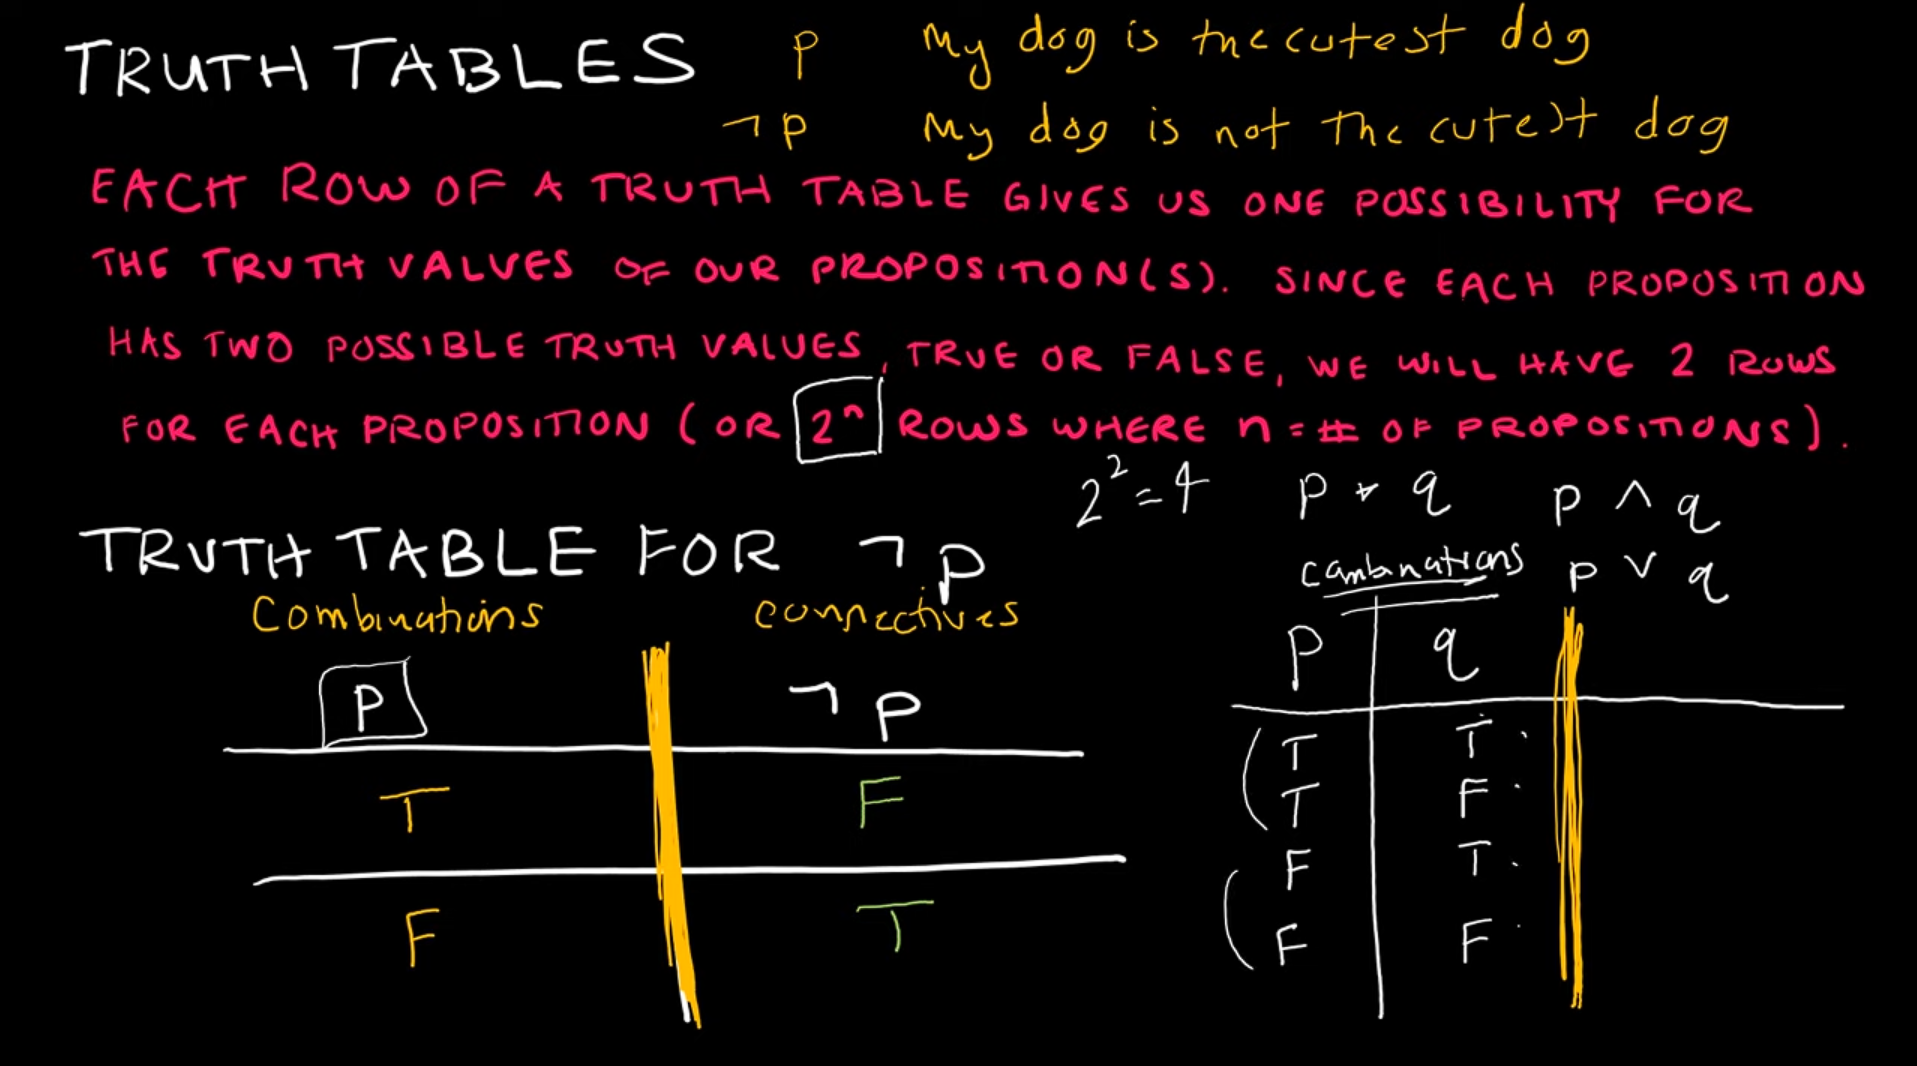 TRUTH TABLES
p My dog is the cutest dog
¬p My dog is not the cutest dog
EACH ROW OF A TRUTH TABLE GIVES US ONE POSSIBILITY FOR
THE TRUTH VALUES OF OUR PROPOSITION(S). SINCE EACH PROPOSITION
HAS TWO POSSIBLE TRUTH VALUES, TRUE OR FALSE, WE WILL HAVE 2 ROWS
FOR EACH PROPOSITION (OR 2ⁿ ROWS WHERE n = # OF PROPOSITIONS).
TRUTH TABLE FOR ¬p
Combinations connectives
P ¬p
T F
F T
2² = 4 p + q p ∧ q
combinations p ∨ q
p q
T T
T F
F T
F F